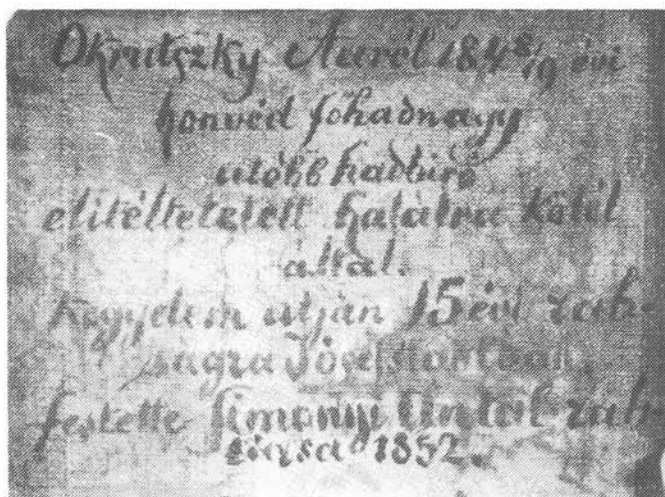 Okrutszky Aurél 1848/49 évi
honvéd főhadnagy
utóbb hadbiró
elitéltetztett halálra kötél
által.
Kegyelem utján 15 évi rab-
ságra Josefstadtban,
festette Simonyi Antal rab-
társa 1852.